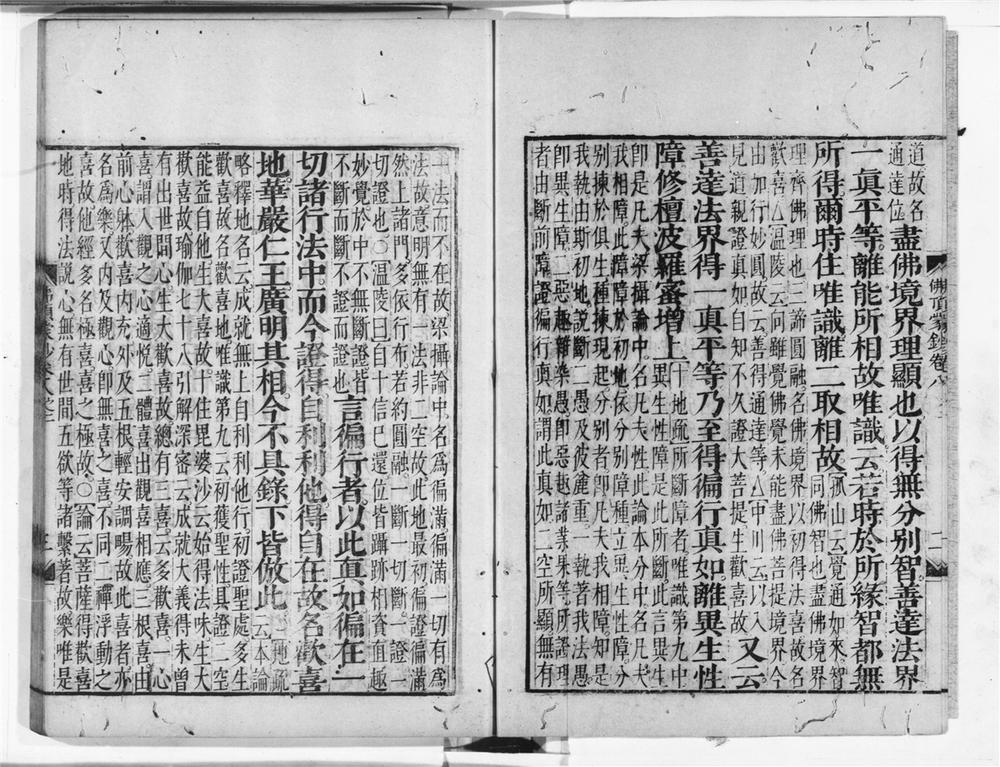 道故名
通達位
盡佛境界理顯也以得無分別智善達法界
一眞平等離能所相故唯識云若時於所緣智都無
所得爾時住唯識離二取相故
孤山云覺通如來智
同佛智也盡佛境界
理齊佛理也二諦圓融名佛境界以初得法喜故名
歡喜△溫陵云向雖覺佛覺未能盡佛菩提境界今
出加行妙圓故云善得通達等△中川云以入
見道親證真如自知不久證大菩提生歡喜故
又云
善達法界得一真平等乃至得徧行真如離異生性
障修檀波羅蜜增上
十地疏所斷障者唯識第九中
一異生性障是此所斷此言異生
即是凡夫梁攝論中名凡夫性此論本分中名凡夫
我相障此障障於初地依分別障種立異生性障分
別揀於俱生種揀現起分別者即凡夫我相障知是
我執說由斯初地說斷二愚及彼麤重一執著我法愚
即異生障二惡趣雜染愚即惡趣諸業果等所證理
者由斷前障證徧行真如謂此真如二空所顯無有
佛頂蒙鈔卷八
一法而不在故梁攝論中名為徧滿徧滿一切有為
法故意明無有一法非二空故此地最初徧證徧滿
然上諸門多依行布若約圓融一斷一切斷一證一
切證也○溫陵曰自十信已還位皆躡跡相資直趣
妙覺於中不無斷證皆
不斷而斷不證而證也
言徧行者以此真如徧在一
切諸行法中而今證得自利利他得自在故名歡喜
地華嚴仁王廣明其相今不具錄下皆倣此
十地疏
云本論
略釋地名云成就無上自利利他行初證聖處多生
歡喜故名歡喜地唯識第九云初獲聖性具證二空
能益自他生大喜故十住毘婆沙云始得法味生大
歡喜故瑜伽七十八引解深密云成就大義得未曾
有出世間心生大歡喜故總有三喜云多歡喜一心
喜謂入觀之心適悅二體喜出觀喜相應三根喜由
前心躰歡喜內充外及五根輕安調暢故此喜者亦
名為樂又內及觀心即無喜之喜不同二禪浮動之
喜故他經多名極喜喜之極故○論云菩薩得歡喜
地時得法說心無有世間五欲等諸繫著故樂唯是